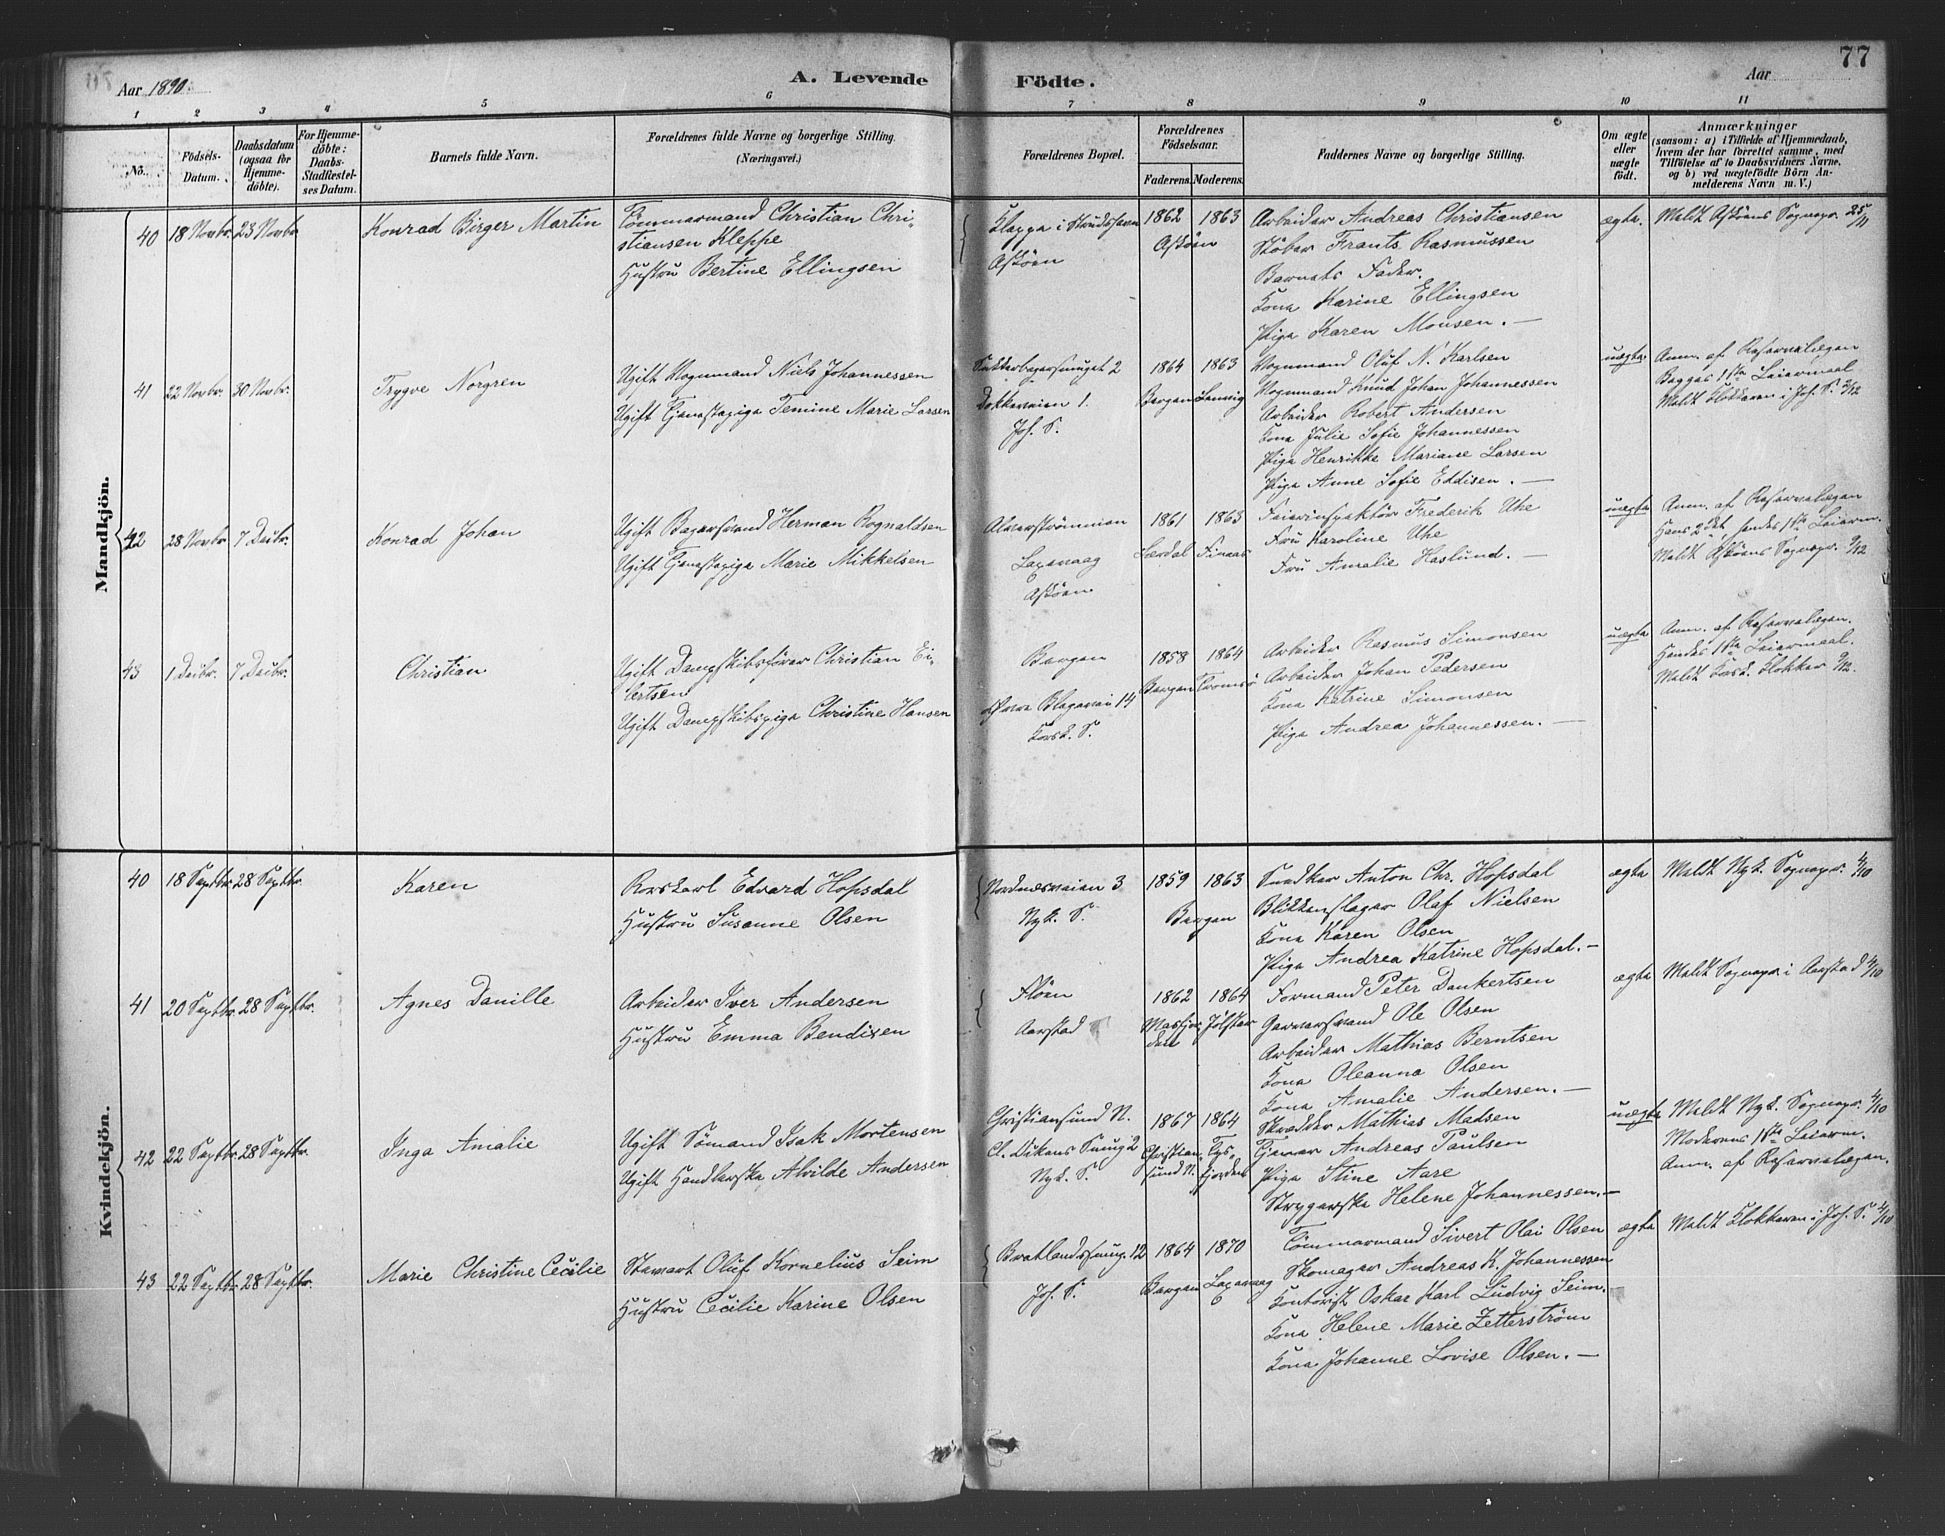 77
Aar 1890.
A. Levende Födte.
Aar
1 2 3 4 5 6 7 8 9 10 11
No.
Födsels-Datum.
Daabsdatum (ogsaa for Hjemmedöbte).
For Hjemmedöbte: Daabs-Stadfæstelses Datum.
Barnets fulde Navn.
Forældrenes fulde Navne og borgerlige Stilling. (Næringsvei.)
Forældrenes Bopæl.
Forældrenes Födselsaar.
Faderens. Moderens.
Faddernes Navne og borgerlige Stilling.
Om ægte eller uægte födt.
Anmærkninger (saasom: a) i Tilfælde af Hjemmedaab, hvem der har forrettet samme, med Tilföielse af to Daabsvidners Navne, og b) ved uægtefödte Börn Anmelderens Navn m. V.)
Mandkjön.
40 18 Novbr. 23 Novbr.
Konrad Birger Martin
Tömmermand Christian Chri-
stiansen Kleppe
Hustru Bertine Ellingsen
Kleppe i Strudshavn
Asköen
1862 1863
Asköen
Arbeider Andreas Christiansen
Stöber Frants Rasmussen
Barnets Fader.
Kone Karine Ellingsen
Pige Karen Monsen. —
ægte.
Meldt Asköens Sognepr. 25/11
41 22 Novbr. 30 Novbr.
Trygve Norgren
Ugift Vognmand Niels Johannessen
Ugift Tjenestepige Temine Marie Larsen
Sukkerbagersmuget 2
Dokkeveien 1.
Joh. S.
1864 1863
Bergen Lemvig
Vognmand Oluf N. Karlsen
Vognmand Knud Johan Johannessen
Arbeider Robert Andersen
Kone Julie Sofie Johannessen
Pige Henrikke Mariane Larsen
Pige Anne Sofie Eddisen. —
uægte
Anm. af Reservelægen
Begges 1ste Leiermaal
Meldt Klokkeren i Joh. S. 2/12
42 28 Novbr. 7 Decbr.
Konrad Johan
Ugift Bagersvend Herman Rognaldsen
Ugift Tjenestepige Marie Mikkelsen
Alverströmmen
Laxevaag
Asköen.
1861 1863
Lærdal Finaas
Feierinspektör Frederik Uhe
Fru Karoline Uhe
Fru Amalie Haslund. —
uægte
Anm. af Reservelægen
Hans 2det hendes 1ste Leierm.
Meldt Asköens Sognepr. 9/12
43 1 Decbr. 7 Decbr.
Christian
Ugift Dampskibsförer Christian Ei-
lertsen
Ugift Dampskibspige Christine Hansen
Bergen
Övre Blegevei 14
Korsk. S.
1858 1864
Bergen Tromsö
Arbeider Rasmus Simonsen
Arbeider Johan Pedersen
Kone Katrine Simonsen
Pige Andrea Johannessen. —
uægte
Anm. af Reservelægen.
Hendes 1ste Leiermaal.
Meldt Korsk. Klokker 9/12.
Kvindekjön.
40 18 Septbr. 28 Septbr.
Karen
Rorskarl Edvard Hopsdal
Hustru Susanne Olsen
Nordnesveien 3
Nyk. S.
1859 1863
Bergen
Snedker Anton Chr. Hopsdal
Blikkenslager Olaf Nielsen
Kone Karen Olsen
Pige Andrea Katrine Hopsdal. —
ægte
Meldt Nyk. Sognepr. 4/10
41 20 Septbr. 28 Septbr.
Agnes Danille
Arbeider Iver Andersen
Hustru Emma Bendixen
Flöen
Aarstad
1862 1864
Masfjor-
den Jölster
Formand Peter Dankertsen
Garversvend Ole Olsen
Arbeider Mathias Berntsen
Kone Oleanna Olsen
Kone Amalie Andersen. —
ægte
Meldt Sognepr. i Aarstad 4/10
42 22 Septbr. 28 Septbr.
Inga Amalie
Ugift Sömand Isak Mortensen
Ugift Handlerske Alvilde Andersen
Christiansund N.
Cl. Dikens Smug 2
Nyk. S.
1867 1864
Christian-
sund N. Tys-
fjorden
Skrædder Mathias Madsen
Tjener Andreas Paulsen
Pige Stine Aare
Strygerske Helene Johannessen. —
uægte
Meldt Nyk. Sognepr. 4/10
Moderens 1ste Leierm.
Anm. af Reservelægen.
43 22 Septbr. 28 Septbr.
Marie Christine Cecilie
Stewart Oluf Kornelius Seim
Hustru Cecilie Karine Olsen
Bratlandssmug. 12
Joh. S.
1864 1870
Bergen Laxevaag
Tömmermand Sivert Olai Olsen
Skomager Andreas K. Johannessen
Kontorist Oskar Karl Ludvig Seim.
Kone Helene Marie Zetterström
Kone Johanne Lovise Olsen. —
ægte
Meldt Klokkeren i Joh. S. 4/10